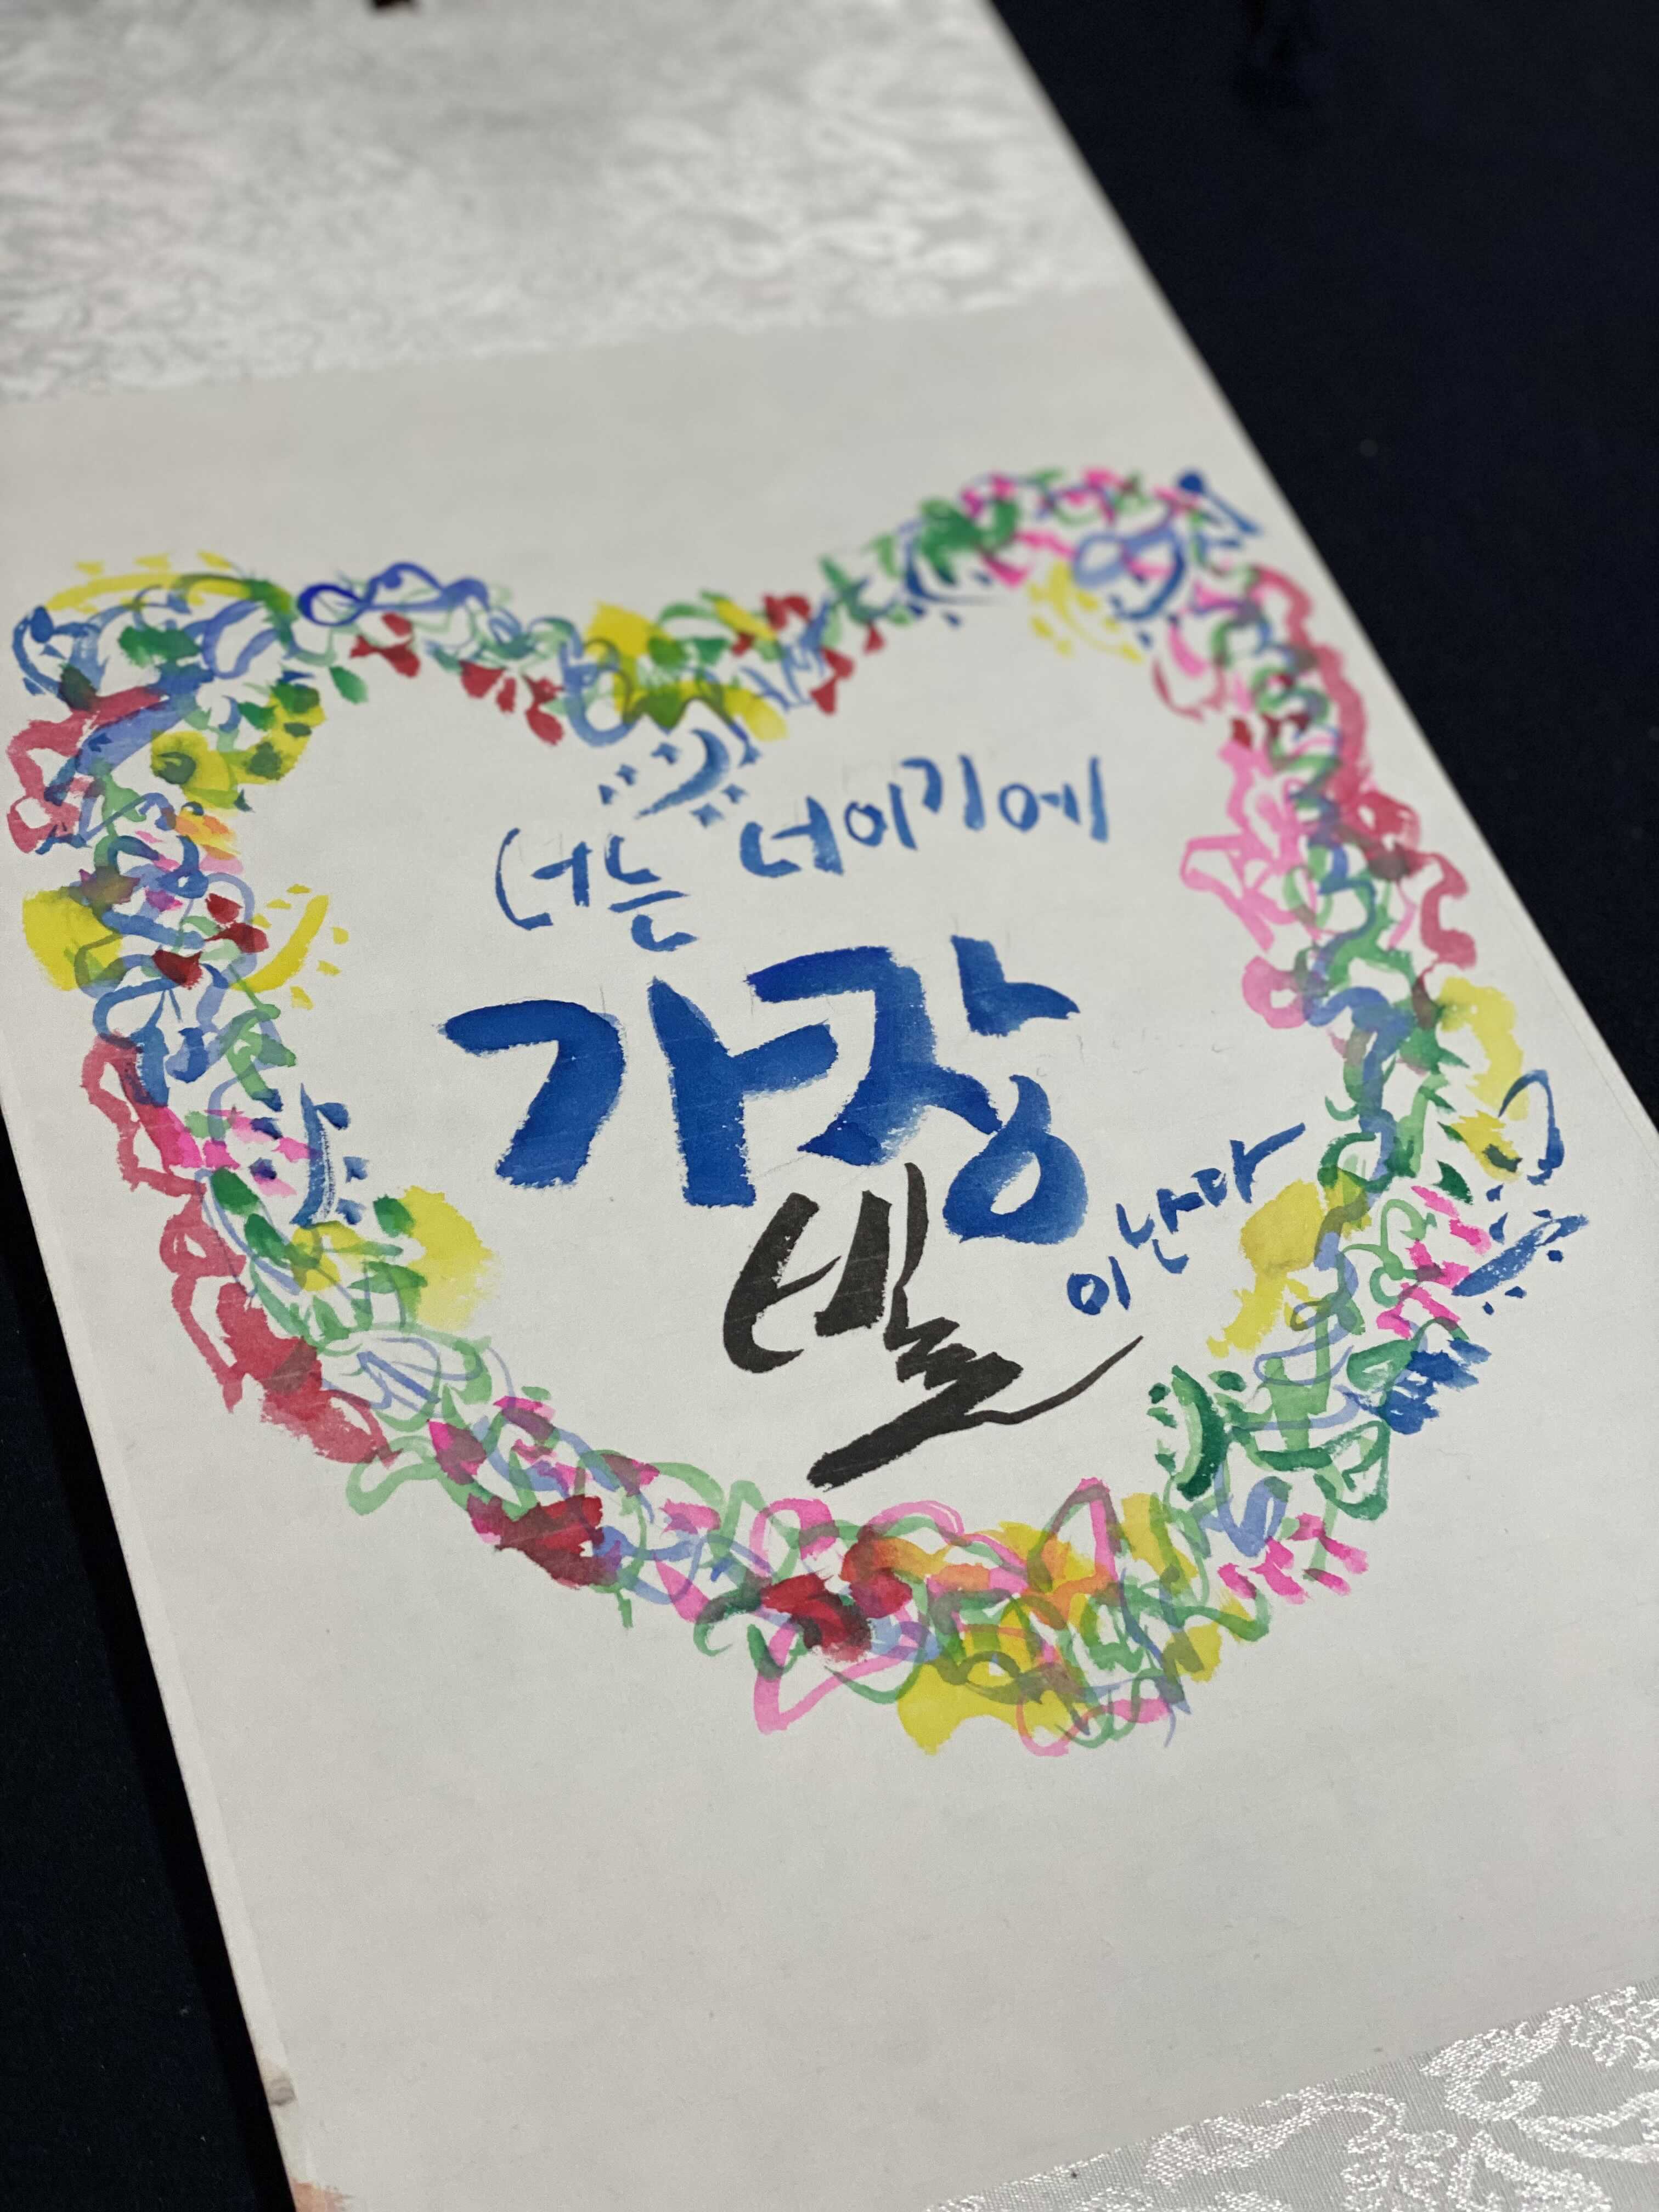 너는 너이기에
가장
빛이난다